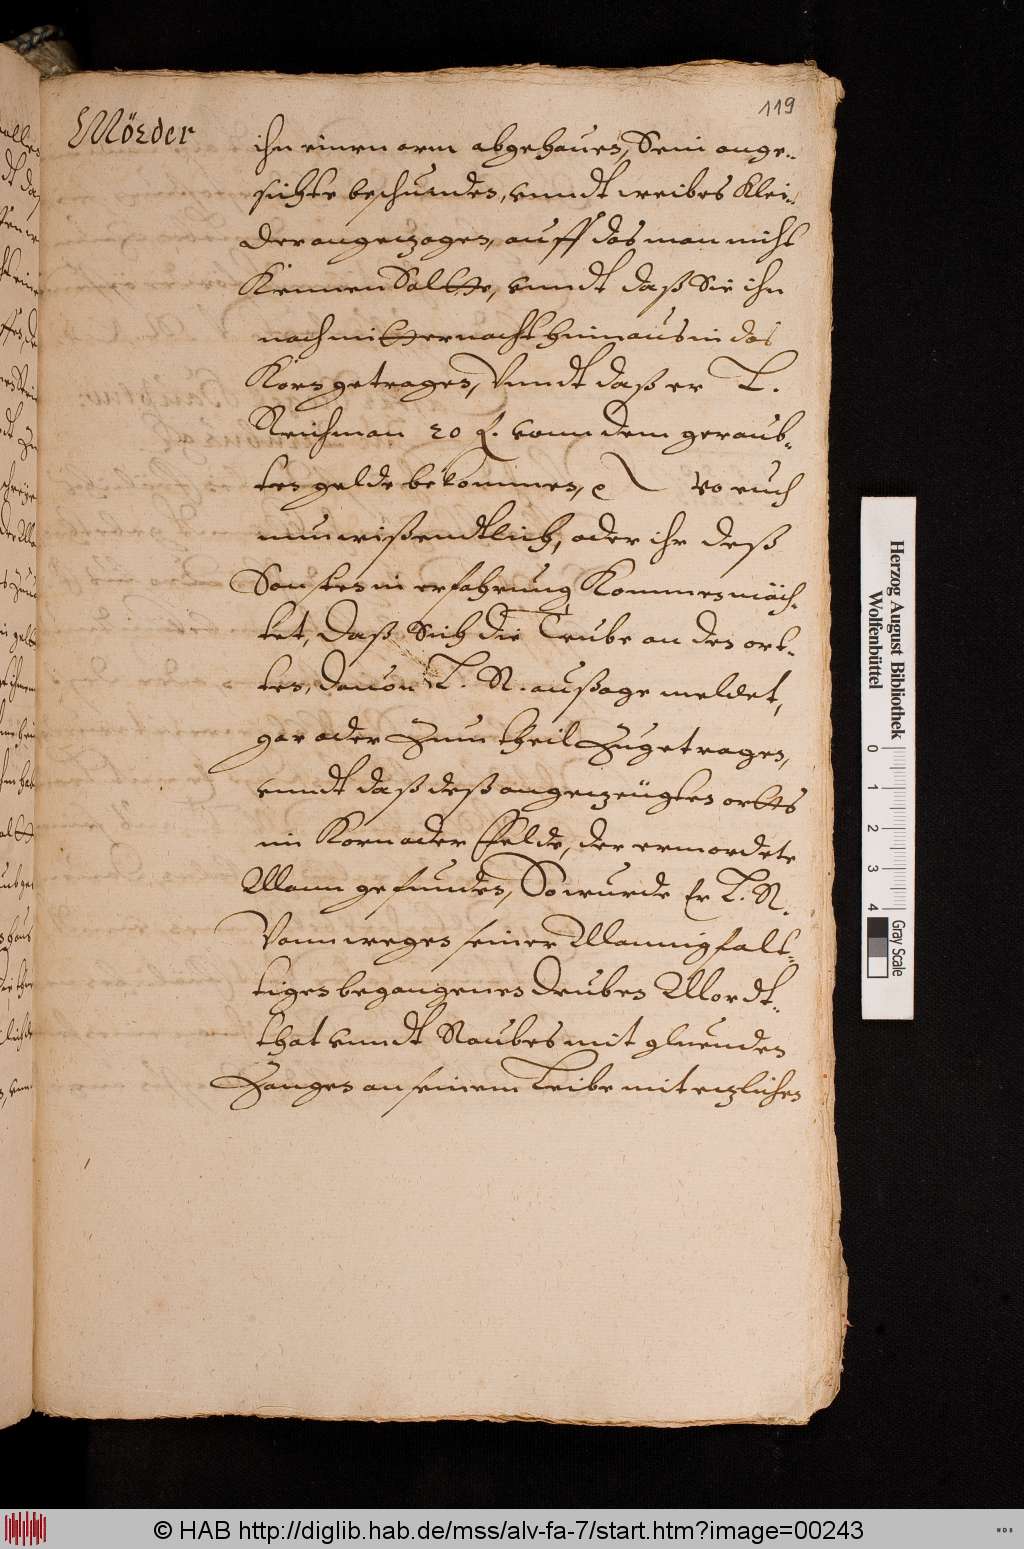 119
Mörder
ihn einen arm abgehauen, Sein ange-
sichte beschunden, vnndt weibes Klei-
der angezogen, auff das man nicht
Kennen Soltte, vnndt daß Sie ihn
nach mitternacht hinaus in das
Korn getragen, Vnndt daß er T.
Reichman 20 f. vonn dem geraub-
ten gelde bekommen, Wo euch
nun wißendtlich, oder ihr deß
Sonsten in erfahrung Kommen möch-
tet, Daß Sich die Deube an den ort-
ten, dauon T. R. außage meldet,
gar oder Zum theil Zugetragen,
vnndt daß deß angezeügten orths
im Korn oder Felde, der ermordete
Mann gefunden, So wurde Er T. R.
Vonn wegen seiner Mannigfalt-
tigen begangenen Deuben Mordt-
that vnndt Raubes mit gluenden
Zangen an seinem Leibe mit etzlichen
Herzog August Bibliothek
Wolfenbüttel
0 1 2 3 4
Gray Scale
© HAB http://diglib.hab.de/mss/alv-fa-7/start.htm?image=00243